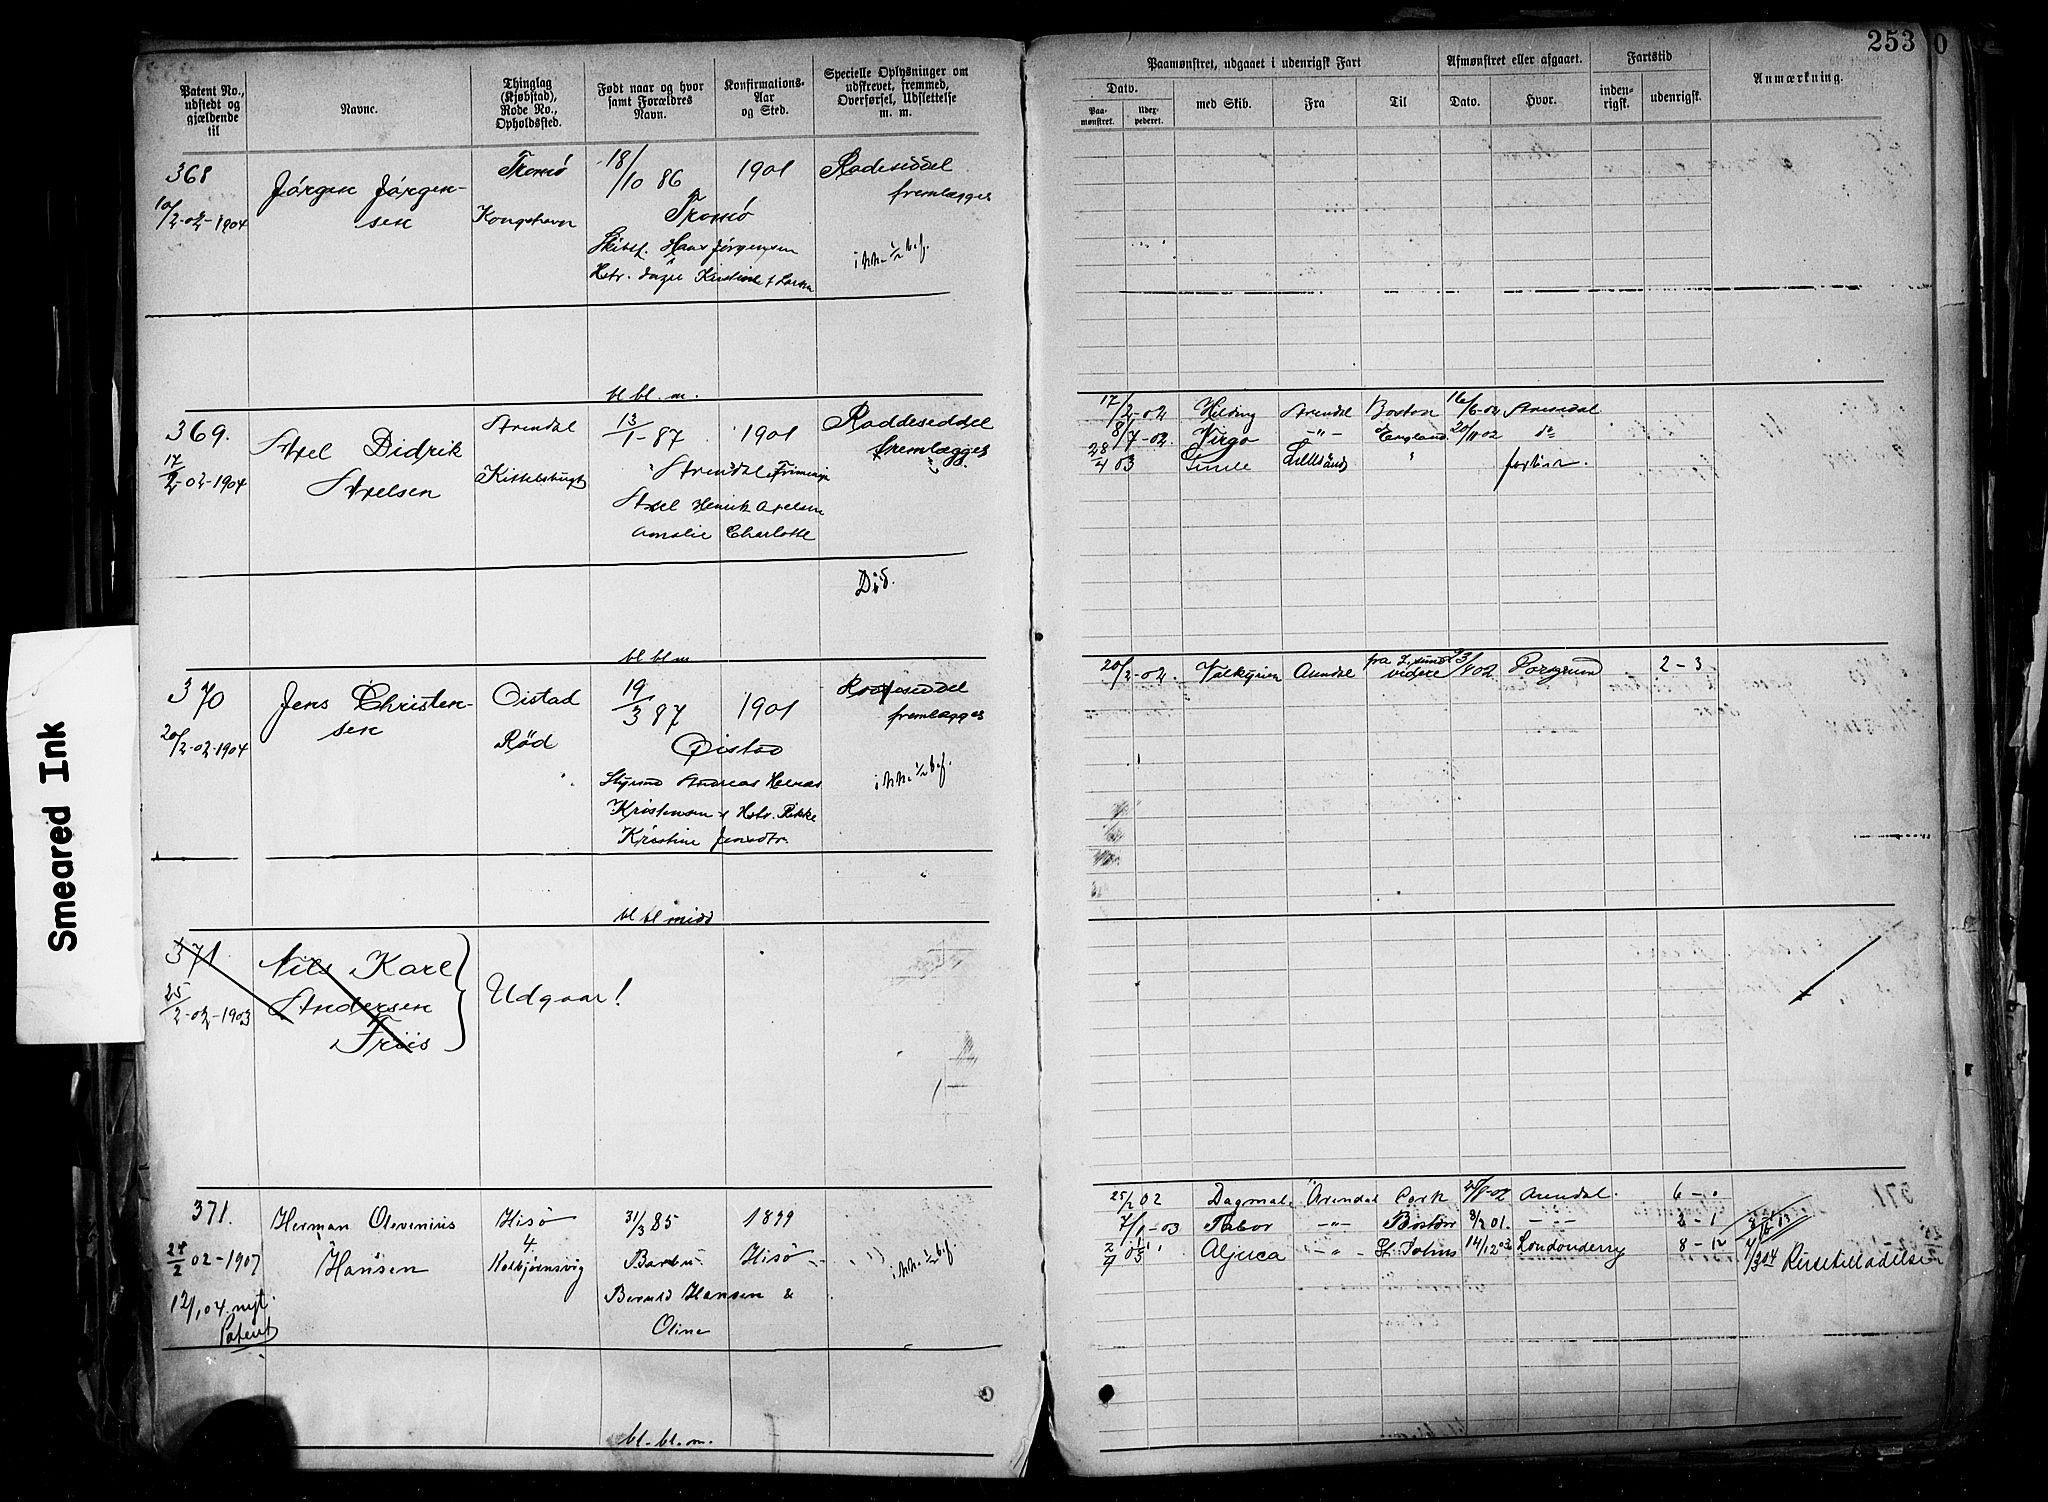 253
0
Patent No.,
udstedt og
gjældende
til
Navn.
Thinglag
(Kjøbstad),
Rode No.,
Opholdssted.
Født naar og hvor
samt Forældres
Navn.
Konfirmations-
Aar
og Sted.
Specielle Oplysninger om
udskrevet, fremmed,
Overførsel, Udslettelse
m. m.
Paamønstret, udgaaet i udenrigsk Fart
Dato.
Paa-
mønstret.
Udex-
pederet.
med Skib.
Fra
Til
Afmønstret eller afgaaet.
Dato.
Hvor.
Fartstid
inden-
rigsk.
udenrigsk.
Anmærkning.
368
10/2-02-1904
Jørgen Jørgen-
sen
Tromø
Kongshavn
18/10 86
Tromø
Skibsf. Hans Jørgensen
Hstr. Inger Kirstine f Larsen
1901
Rodeseddel
fremlægges
i nn. 1/2 b.f.
bl bl. m.
369.
17/2-02-1904
Axel Didrik
Axelsen
Arendal
Kittelsbugt
13/1-87
Arendal Frimenig
Axel Henrik Axelsen
Amalie Charlotte
1901
Roddeseddel
fremlægges
Did.
bl bl m
17/2-02 Hilding Arendal Boston 16/6-02 Arendal
8/7-02. Virgo -"- England 20/11 02 do
28/4 03 Gimle Lillesand " forbier.
370
20/2-02-1904
Jens Christen-
sen
Øistad
Rød
19/3 87
Øistad
Styrmd Andreas
Kristensen & Hstr. Rikke
Kristine Jensdtr.
1901
Rodeseddel
fremlægges
i nn. 1/2 b.f.
bl bl midd
20/2-02. Valkyrien Arendal fra
videre 02 Porsgrund 2-3
371
25/2-02-1903
Nils Karl
Andersen
Friis
Udgaar!
371.
02-1907
12/1 04. nyt.
Patent
Herman Olevenius
Hansen
Hisø
4
Kolbjørnsvig
31/3 85
Barbu
Hansen &
Oline
1899
Hisø
i nn. 1/2 b.f.
bl. bl. m.
25/2 02 Dagmar Arendal Cork Arendal. 6-0
7/1-03 Tabor -"- Boston -"- 2-1
Aljuca -"- St Johns 14/12 03 Londonderry 8-12
Reisetilladelse
Smeared Ink